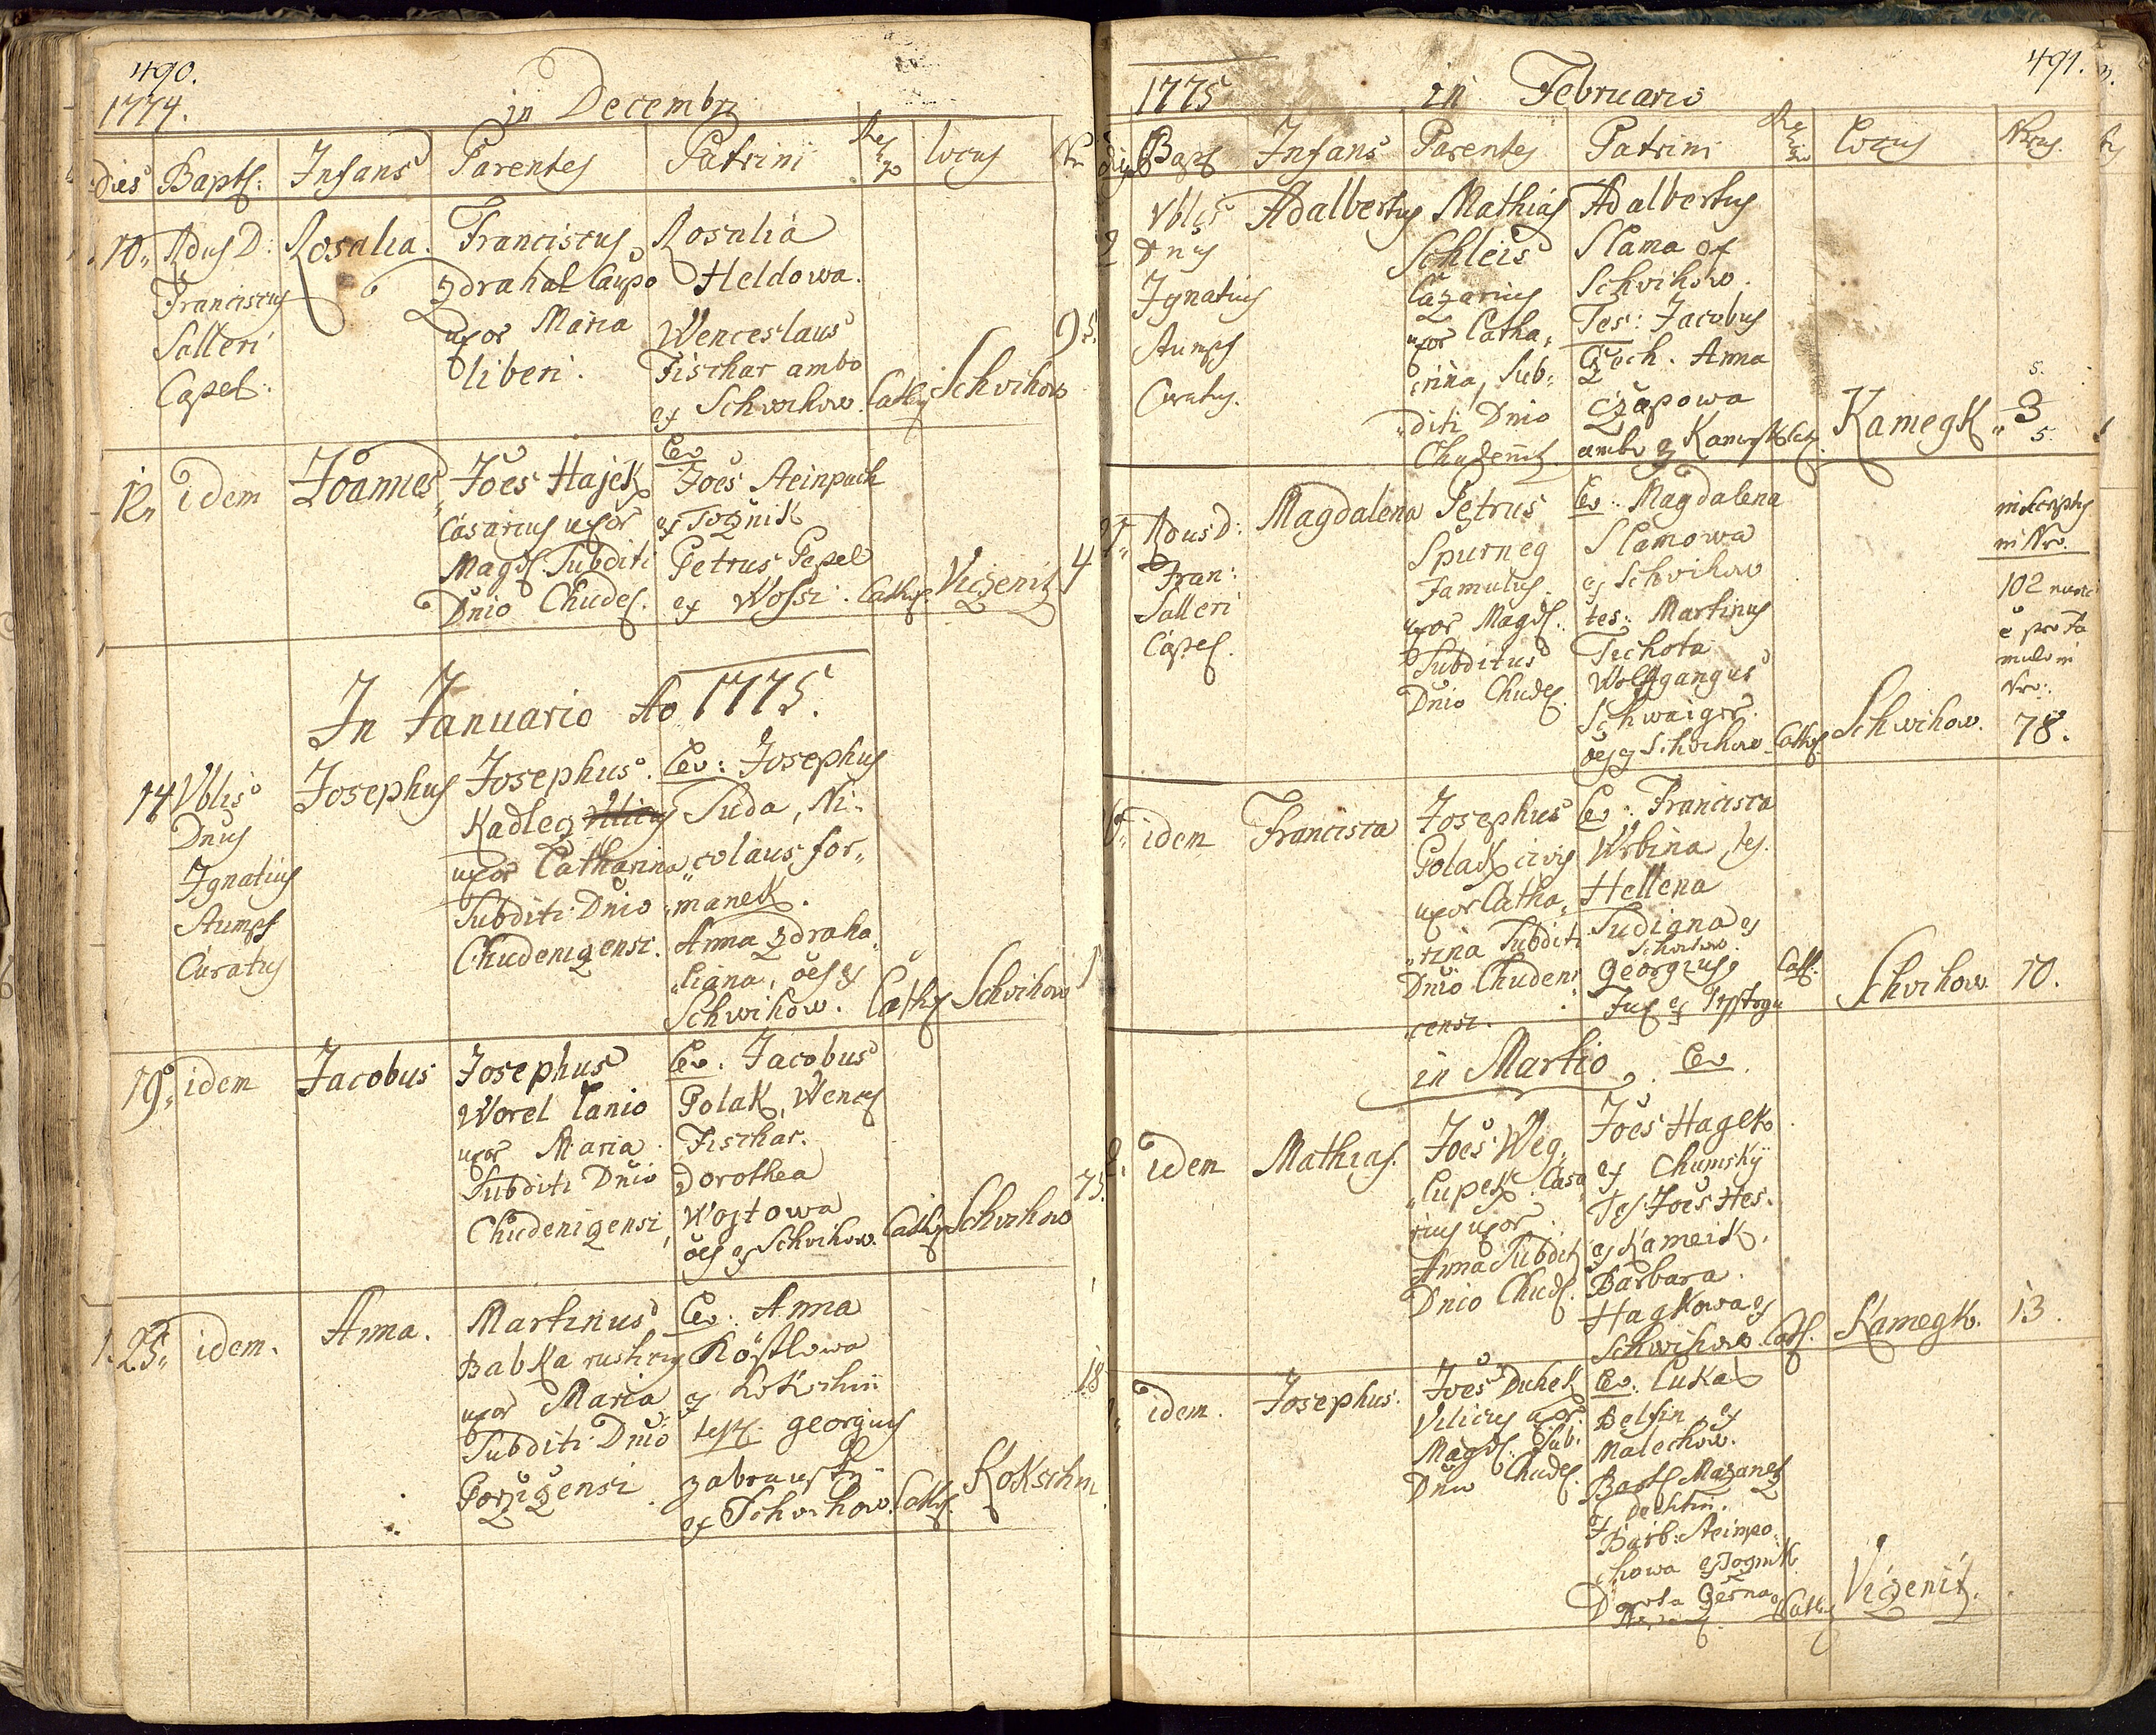 490.
1774.
in Decembri
dies Bapts: Infans Parentes Patrini Religio Locus Nr
10. Rdus D: Franciscus Salleri Capel.
Rosalia.
Franciscus
Zdrahal Caupo
uxor Maria
liberi.
Rosalia
Heldowa.
Wenceslaus
Fischar ambo
ex Schwihow.
Cathol.
Schvihow
95.
12. idem
Joannes
Joēs Hajek
Casarius uxor
Magd. Subditi
Dnio Chudes.
Lev.
Joēs Steinpach
ex Tognik
Petrus Pepel
ex Wossi.
Cathol.
Vizenitz
4
In Januario Ao 1775.
14 Vblis
Dnus
Ignatius
Stumpf
Curatus
Josephus
Josephus
Kadlez Vilicus
uxor Catharina
Subditi Dnio
Chudenizensi.
Lev: Josephus
Tuda, Ni-
colaus for-
manek.
Anna Zdraha-
liana, oēs ex
Schwihow.
Cathol.
Schvihow
1
19. idem
Jacobus
Josephus
Worel Lanio
uxor Maria
Subditi Dnio
Chudenizensi
Lev. Jacobus
Polak, Wences
Fischar.
Dorothea
Wojtowa
oēs ex Schvihow.
Cathol.
Schvihow
75.
25. idem.
Anna.
Martinus
Babka rusticus
uxor Maria
Subditi Dnio
Porzizensi
Lev: Anna
Köstlowa
ex Kokschin
test. georgius
zabransky
ex Schvihow.
Cathol.
Kokschin
18
491.
1775
in Februario
dies Bapt Infans Parentes Patrini Religio Locus Nrus.
2 Vblis
Dnus
Ignatius
Stumpf
Curatus.
Adalbertus
Mathias
Schleis
Cazarius
uxor Catha-
rina, Sub-
diti Dnio
Chudenitz.
Adalbertus
Slama ex
Schvihow.
Tes: Jacobus
Czech. Anna
Czapowa
ambo ex Kamegk
Kamegk
3
5.
Rdus D:
Fran:
Salleri
Capel.
Magdalena
Petrus
Spurneg
Famulus
uxor Magd.
Subditus
Dnio Chudes.
Lev: Magdalena
Slamowa
ex Schvihow
tes: Martinus
Tichota
Wolfgangus
Schwaiger.
oēs ex Schvihow.
Cathol.
Schwihow.
inscriptus
in Nro.
102 nunc
e pro Fa
mulo in
Nro:
78.
idem
Francisca
Josephus
Polak civis
uxor Catha-
rina Subditi
Dnio Chudeni-
censi.
Lev: Francisca
Wrbina, tes.
Hellena
Tudiana ex
Schvihow.
Georgius
Cath.
Schvihow.
10.
in Martio. Lev.
idem
Mathias.
Joēs Weg-
lupek Casa-
rius uxor
Anna Subditi
Dnio Chud.
Joēs Hagek
ex Chumsky
Tes. Joēs Hes.
ex Kameik.
Barbara
Hagkowa ex
Schwihow.
Cath.
Kamegk.
13.
idem.
Josephus.
Joēs Duhek
Vilicus uxor
Magd. Sub.
Dnio Chudes.
Lev. Lukas
Belsin, ex
Malechow.
Bart. Mazanez
ex Dechtin.
Barb: Steinpo-
chowa ex Tognik.
Cath.
Vizenitz.